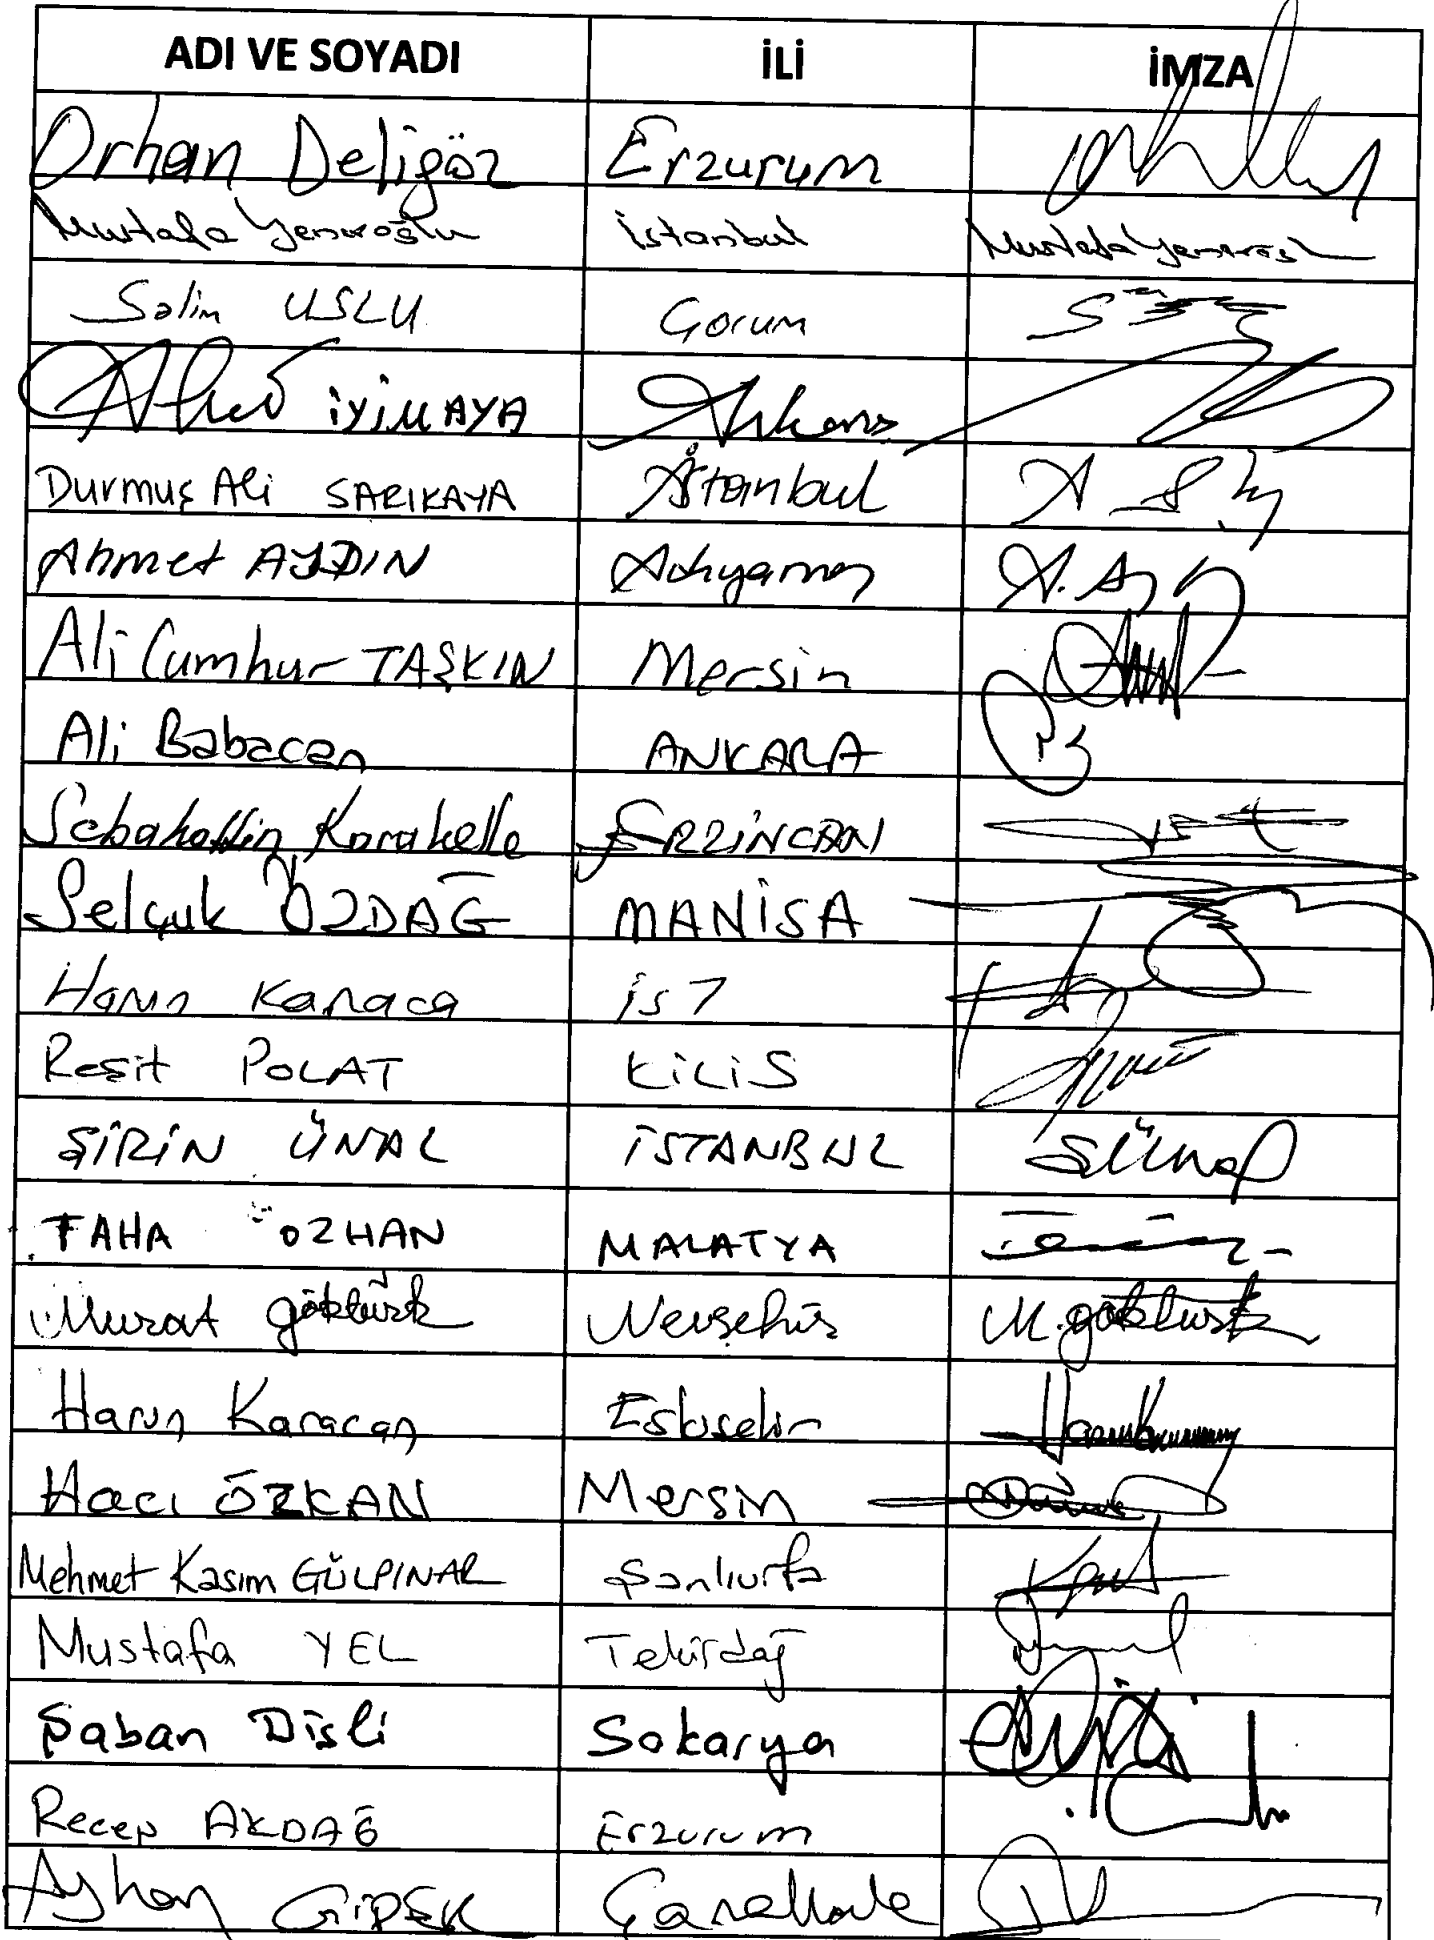 ADI VE SOYADI İLİ İMZA
Orhan Deligöz Erzurum
Mustafa Yeneroğlu İstanbul Mustafa Yeneroğlu
Salim USLU Çorum
Ahmet İYİMAYA Ankara
Durmuş Ali SARIKAYA İstanbul
Ahmet AYDIN Adıyaman
Ali Cumhur TAŞKIN Mersin
Ali Babacan ANKARA
Sebahattin Karakelle ERZİNCAN
Selçuk ÖZDAĞ MANİSA
Harun Karaca İST
Reşit POLAT KİLİS
ŞİRİN ÜNAL İSTANBUL SÜnal
TAHA ÖZHAN MALATYA
Murat Göktürk Nevşehir M. Göktürk
Harun Karacan Eskişehir
Hacı ÖZKAN Mersin
Mehmet Kasım GÜLPINAR Şanlıurfa
Mustafa YEL Tekirdağ
Şaban Dişli Sakarya
Recep AKDAĞ Erzurum
Ayhan GİDER Çanakkale